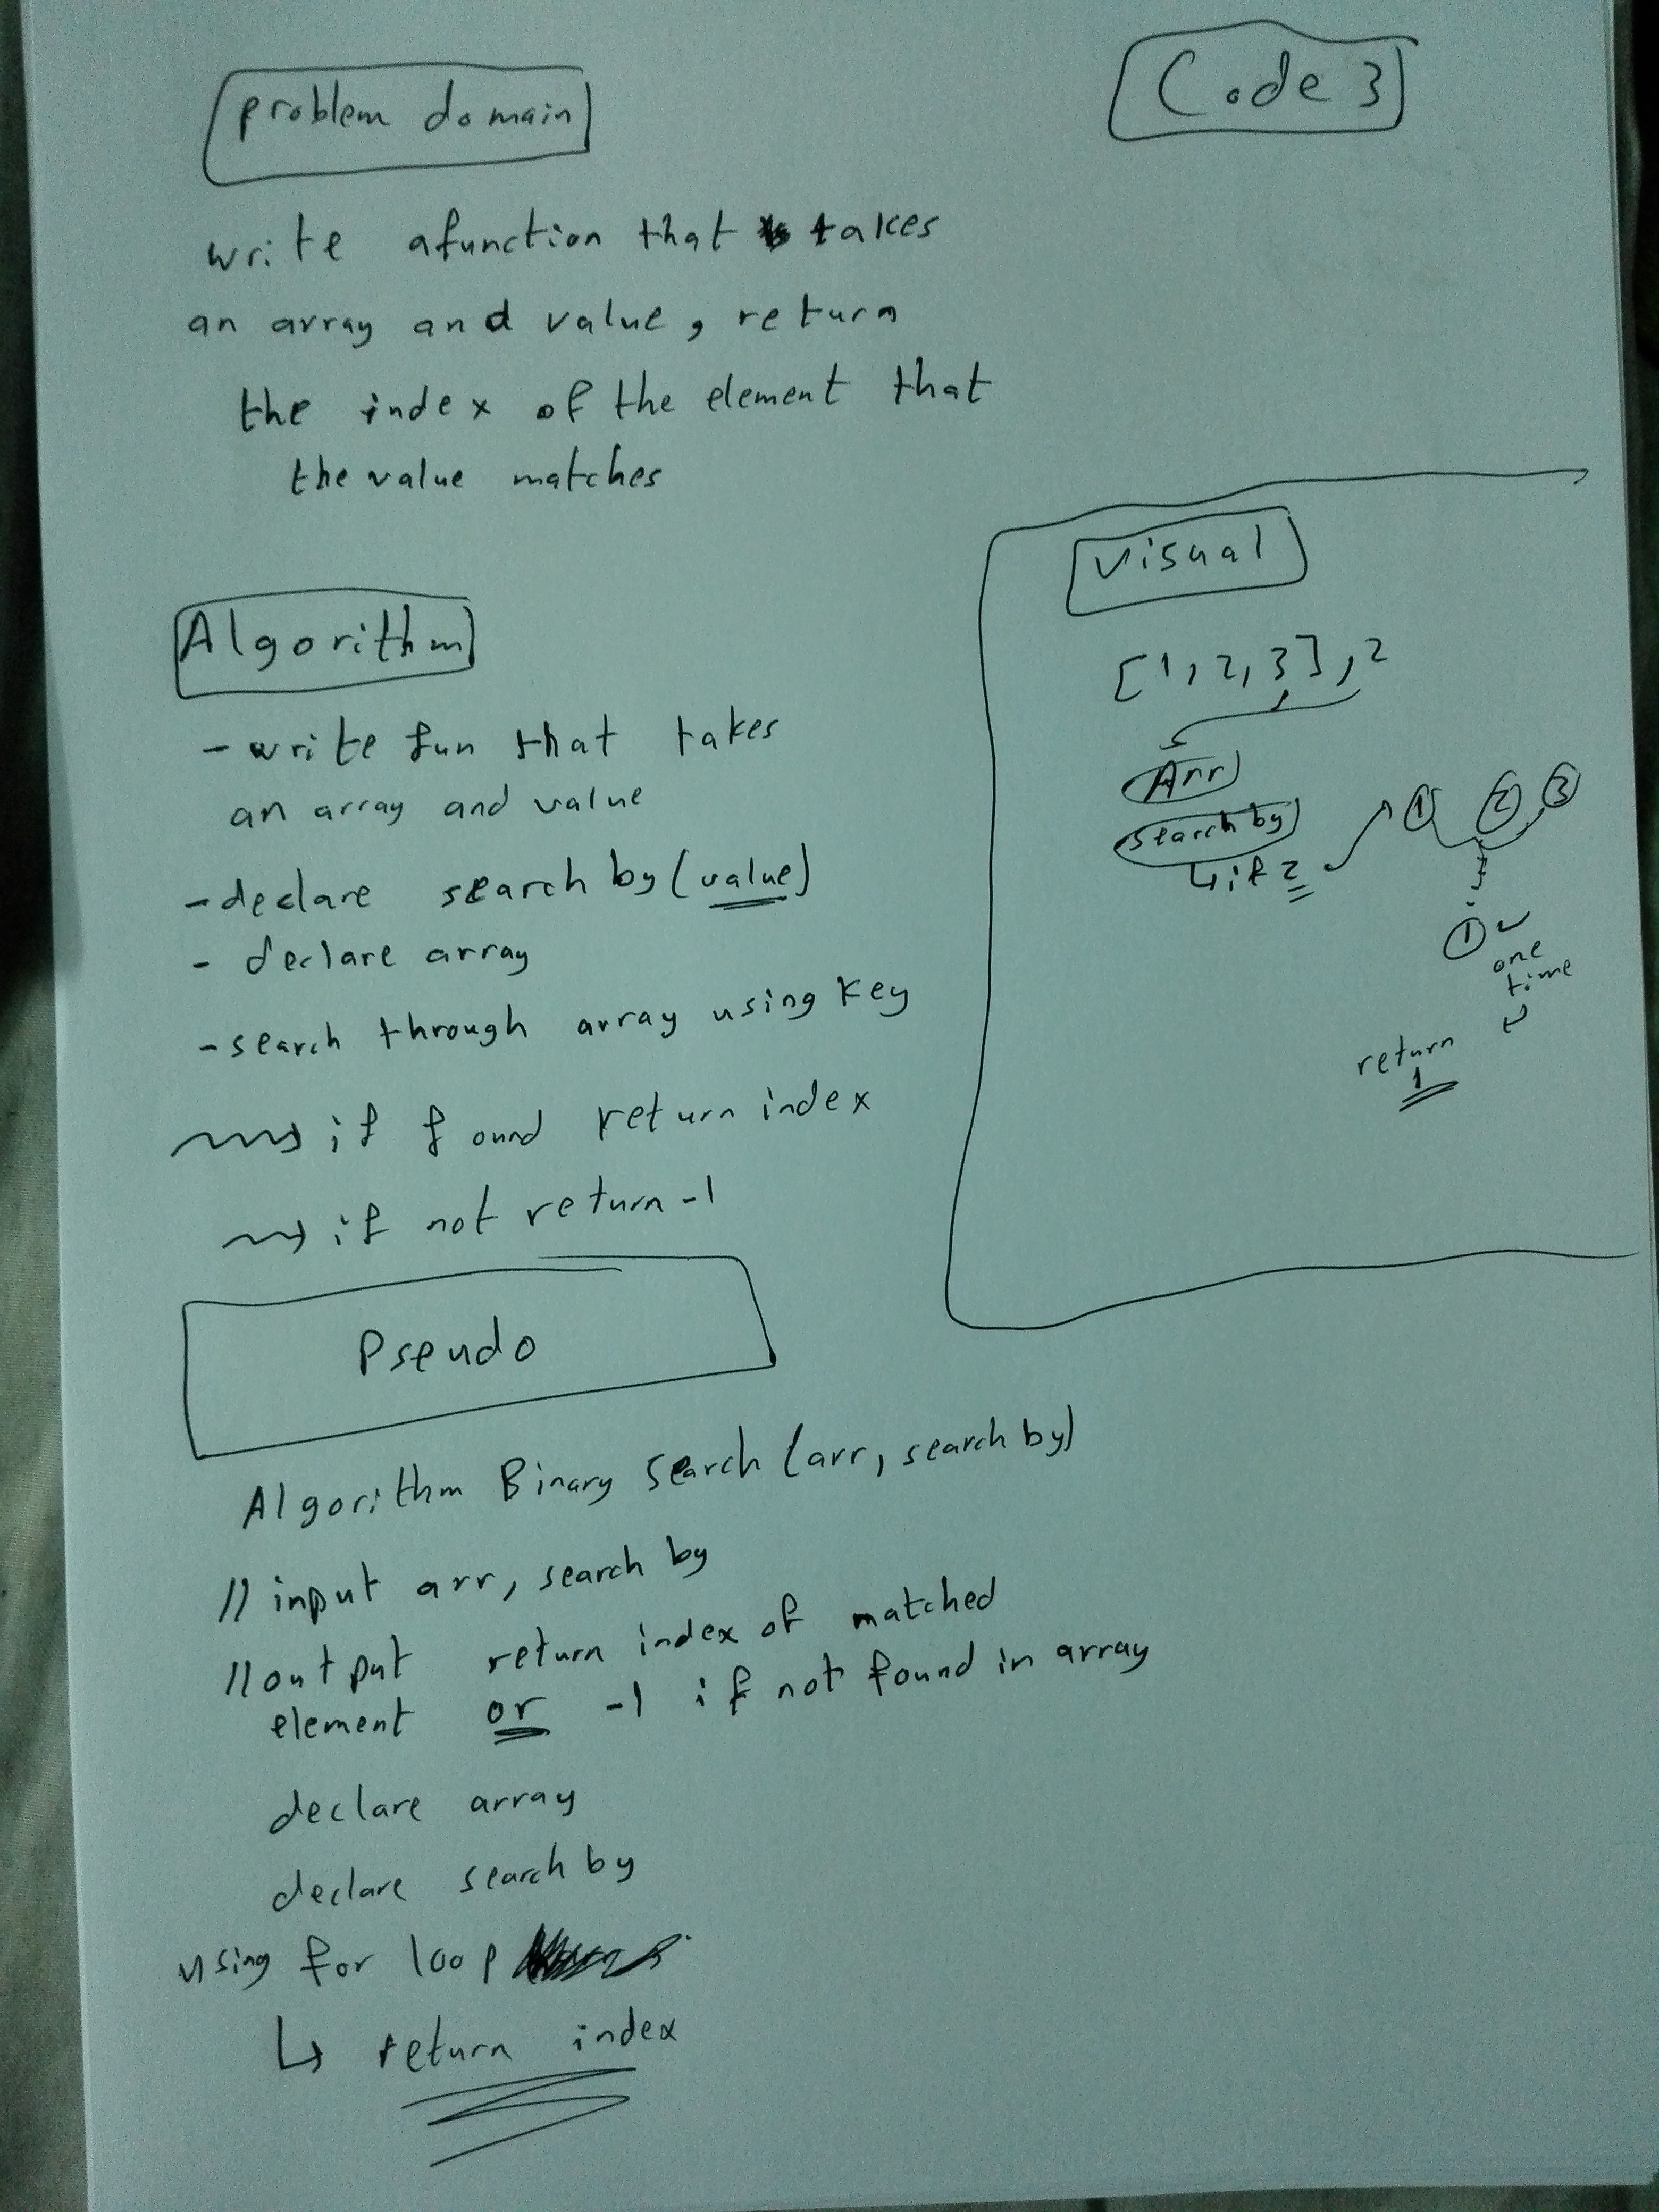 problem domain
Code 3
write afunction that takes
an array and value, return
the index of the element that
the value matches
Algorithm
- write fun that takes
an array and value
- declare search by (value)
- declare array
- search through array using key
if found return index
if not return -1
visual
[1, 2, 3], 2
Arr
search by
1 2 3
1
one
time
return
1
Pseudo
Algorithm Binary Search (arr, search by)
// input arr, search by
// output return index of matched
element or -1 if not found in array
declare array
declare search by
using for loop
↳ return index